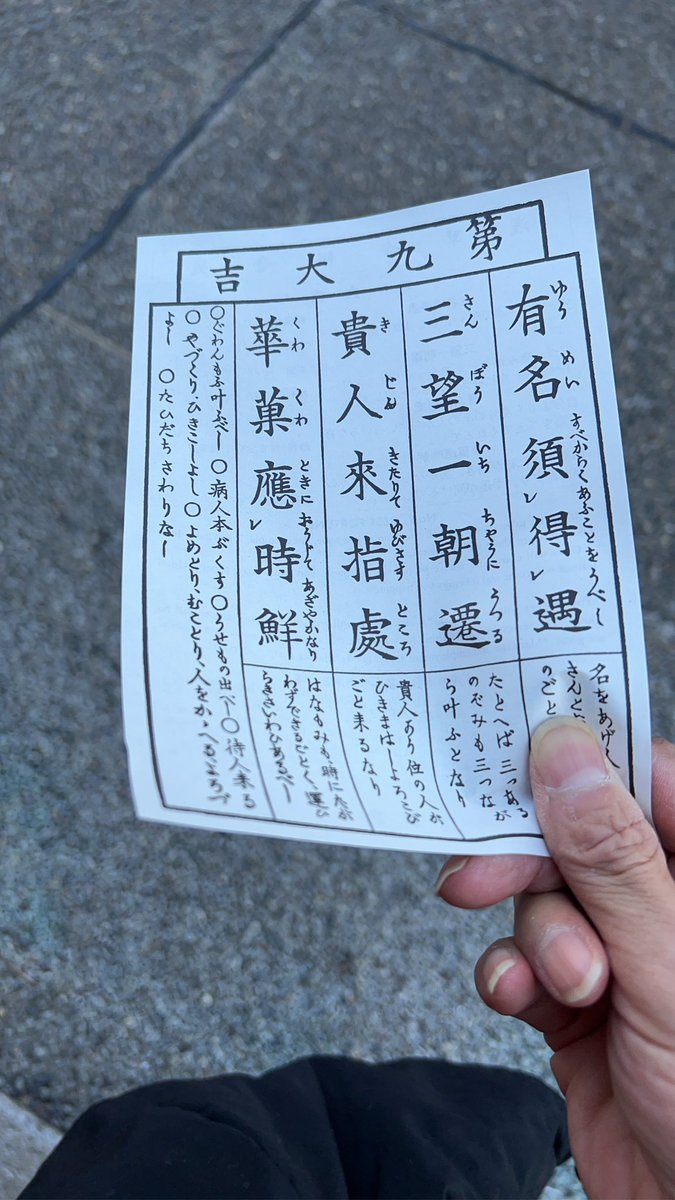 第九大吉
有名須レ得レ遇
ゆうめいすべからくあふことをうべし
三望一朝遷
さんぼういちちやうにうつる
貴人來指處
きじんきたりてゆびさすところ
華菓應レ時鮮
くわくわときにおうじてあざやかなり
名をあげ
きんと
のごと
たとへば三つある
のぞみも三つなが
ら叶ふとなり
貴人あり位の人が
ひきましよろこび
ごと来るなり
はなもみも、時にたが
わずできるごとく、運ひ
らきさいわひあるべし
〇ぐわんもふ叶ふべし〇病人本ぶくす〇うせもの出べし〇待人来る
〇やづくり、ひきこしよし〇よめとり、むことり、人をかゝへる、よろづ
よし〇たひだちさわりなし